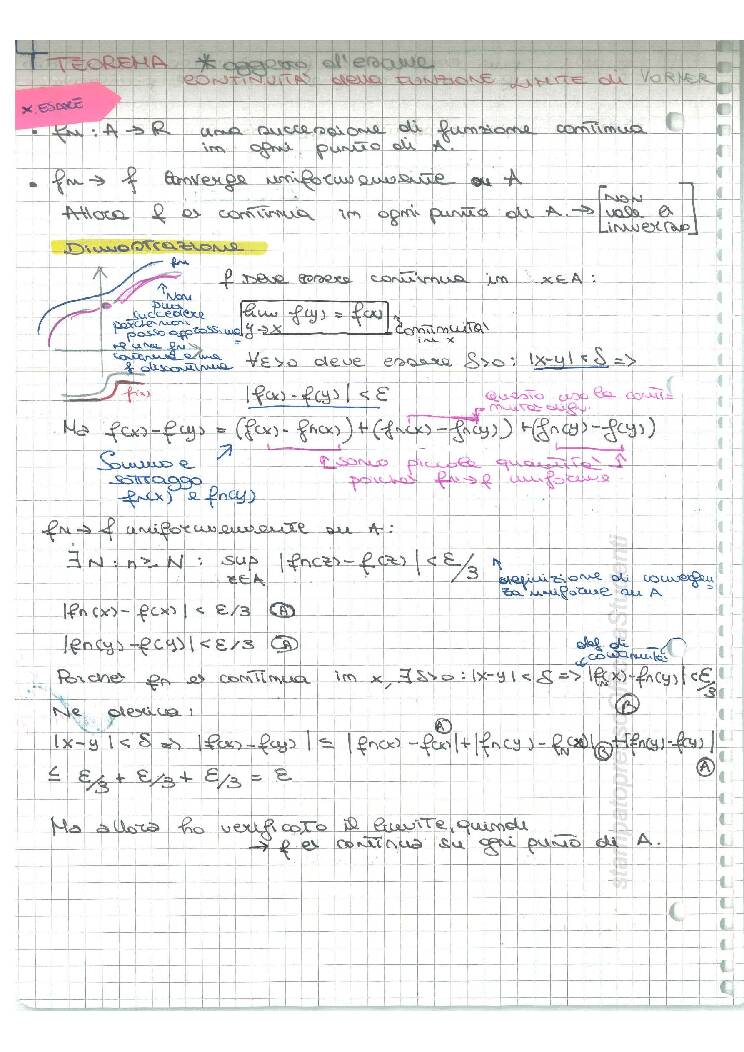 4 TEOREMA * oggetto d'esame
CONTINUITÀ della FUNZIONE LIMITE di
X ESAME
• fn : A → R una successione di funzione continua
in ogni punto di A.
• fn → f converge uniformemente su A
Allora f è continua in ogni punto di A. → [NON vale è inverso]
Dimostrazione
fn
f deve essere continua in x∈A :
Non può succedere perché non posso approssimare una fn continua a una f discontinua
f(x)
lim f(y) = f(x)
y→x
continuità in x
∀ε>0 deve essere δ>0 : |x-y| < δ =>
|f(x) - f(y)| < ε
Questo uso la continuità di fn.
Ma f(x) - f(y) = (f(x) - fn(x)) + (fn(x) - fn(y)) + (fn(y) - f(y))
Sommo e sottraggo fn(x) e fn(y)
sono piccole quantità
perché fn→f uniforme
fn → f uniformemente su A :
∃ N : n ≥ N : sup |fn(z) - f(z)| < ε/3
z∈A
definizione di convergenza uniforme su A
|fn(x) - f(x)| < ε/3 (A)
|fn(y) - f(y)| < ε/3 (A)
def di continuità
Perché fn è continua in x, ∃ δ>0 : |x-y| < δ => |fn(x) - fn(y)| < ε/3
(B)
Ne deriva :
|x-y| < δ => |f(x) - f(y)| ≤ |fn(x) - f(x)| (A) + |fn(y) - fN(x)| (B) + |fn(y) - f(y)| (A)
≤ ε/3 + ε/3 + ε/3 = ε
Ma allora ho verificato il limite, quindi
→ f è continua su ogni punto di A.